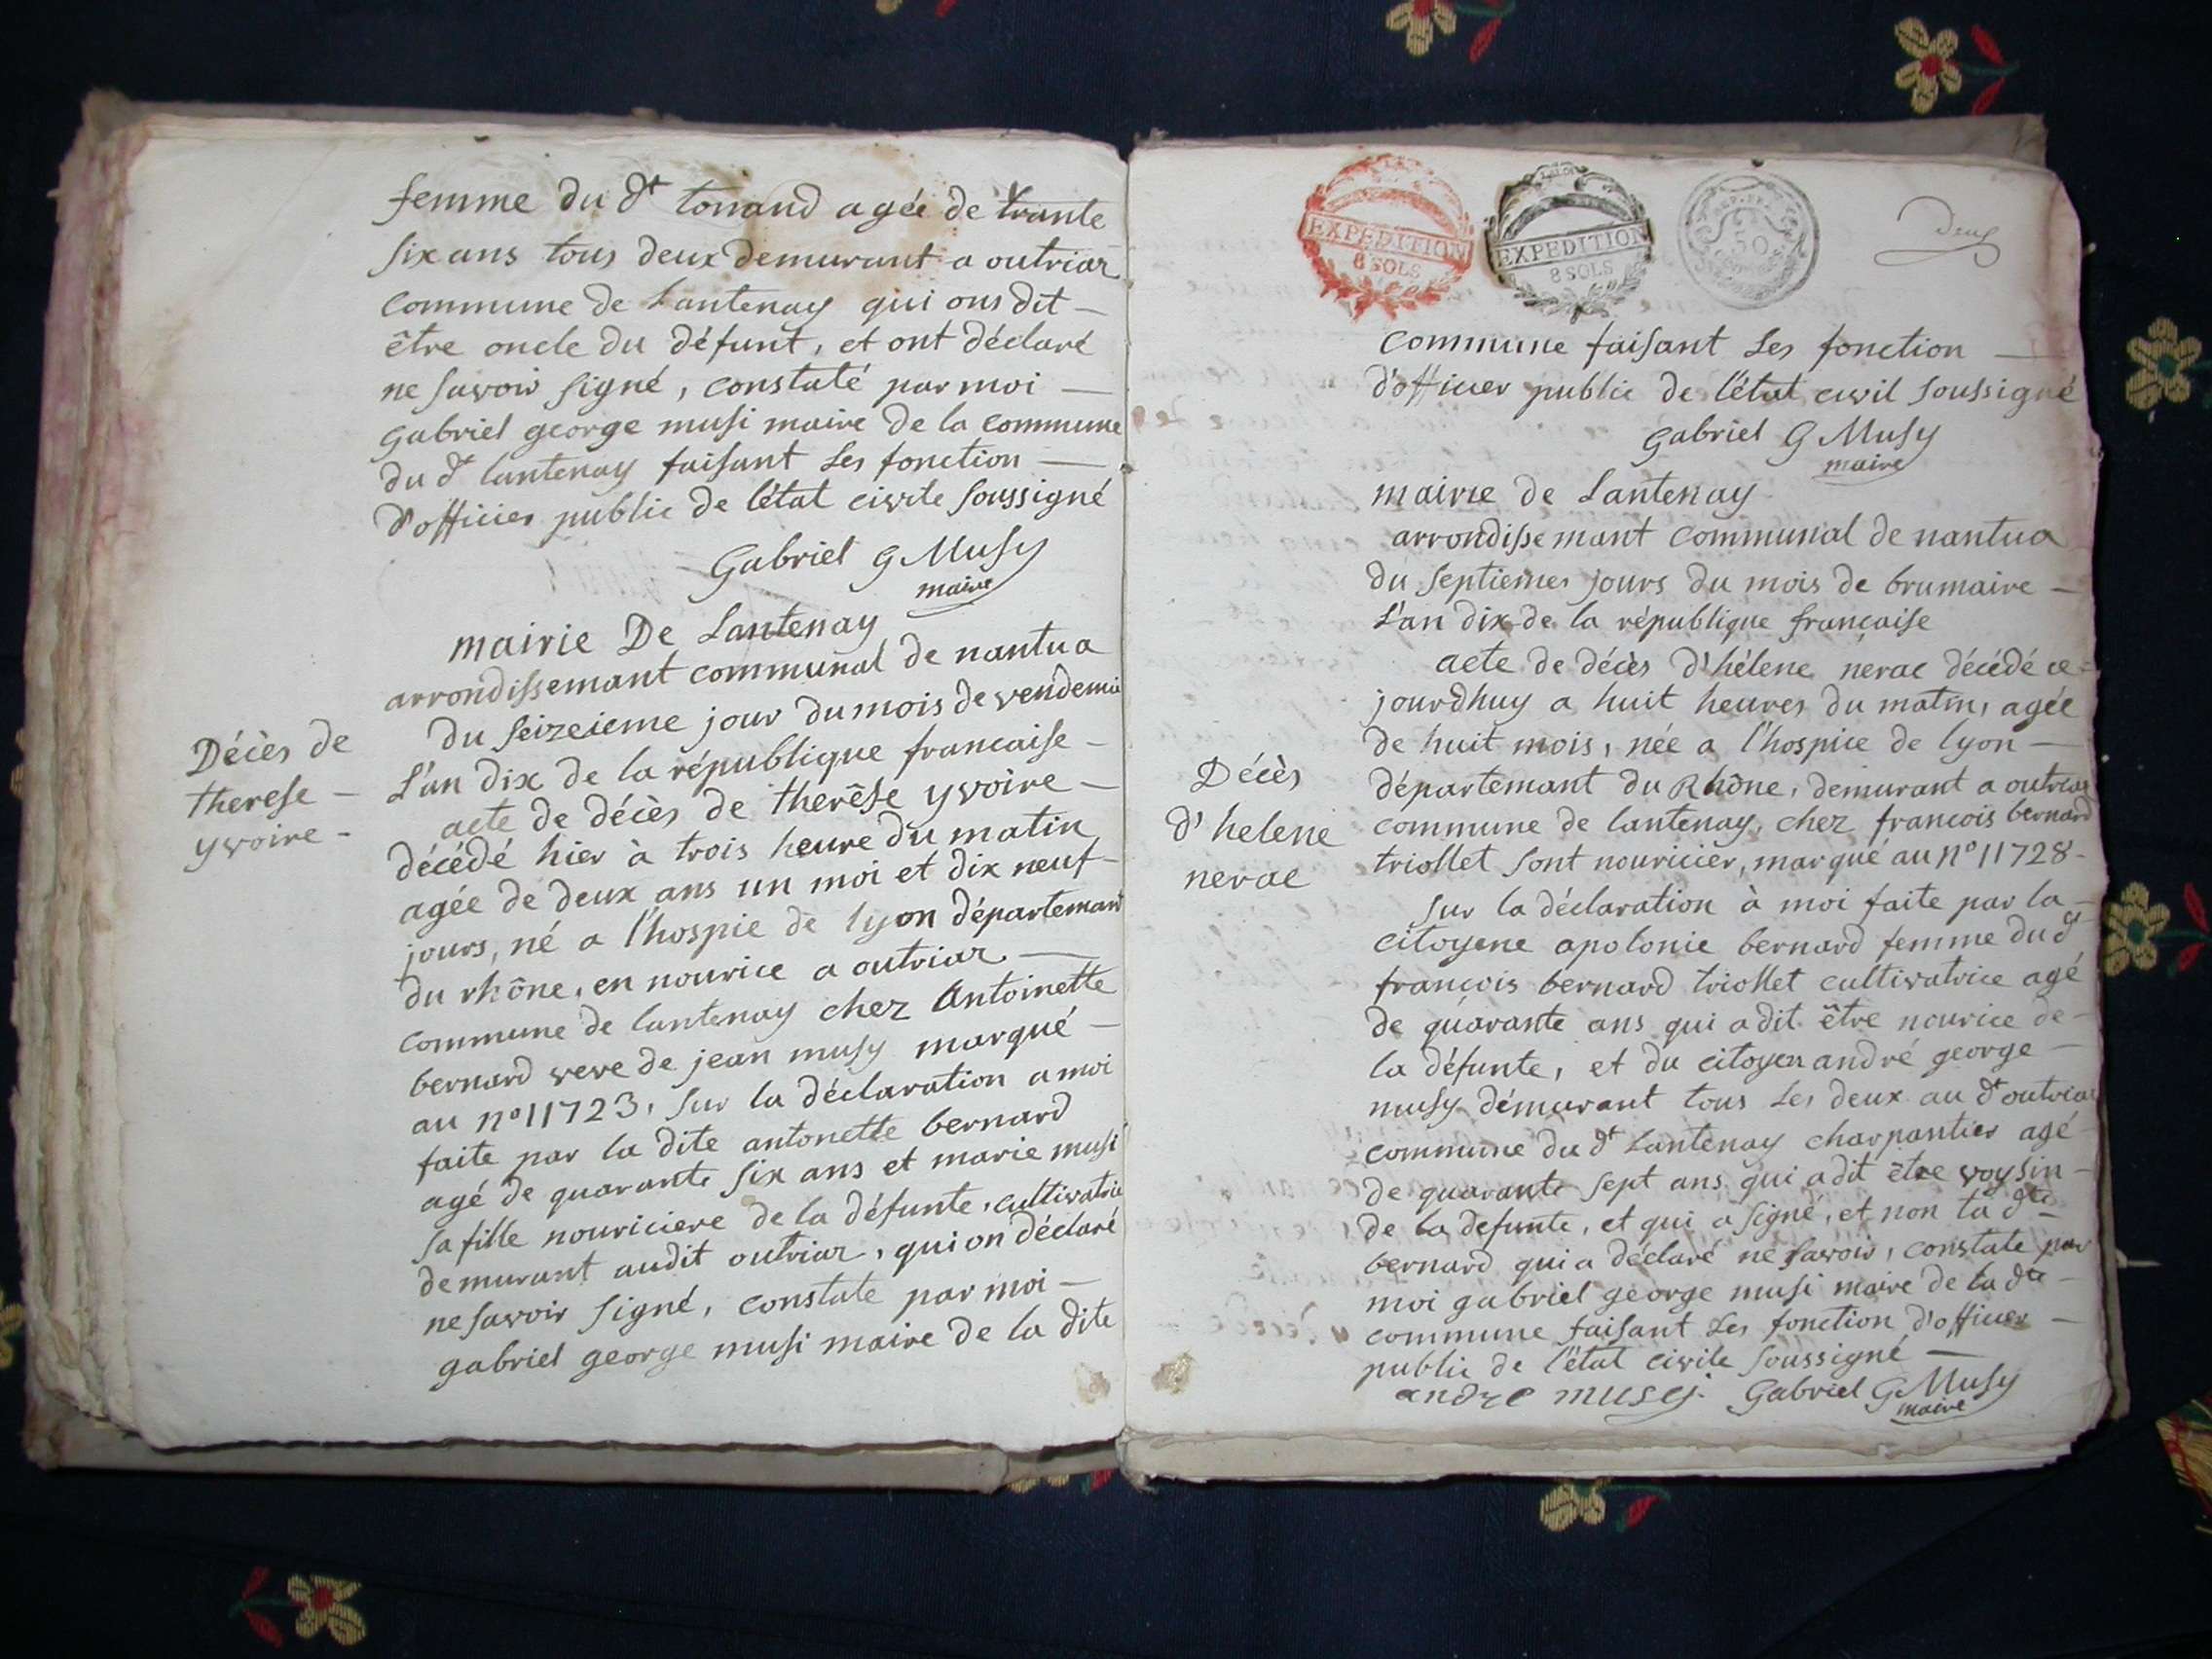 femme du dt tonand agée de trante
six ans tous deux demurant a outriar
commune de Lantenay qui ons dit -
être oncle du défunt, et ont déclaré
ne savoir signé, constaté par moi -
gabriel george musi maire de la commune
du dt lantenay faisant les fonction -
d'officier public de l'état civile soussigné
Gabriel G Musy
maire
mairie De Lantenay
arrondissemant communal de nantua
du seizeieme jour du mois de vendemia
L'an dix de la république francaise -
Décès de
therese -
yvoire -
acte de décès de therêse yvoire -
décédé hier à trois heure du matin
agée de deux ans un moi et dix neuf -
jours, né a l'hospie de lyon départemant
du rhône, en nourice a outriar -
commune de lantenay chez Antoinette
bernard veve de jean musy marqué -
au n° 11723, sur la déclaration a moi
faite par la dite antonette bernard
agé de quarante six ans et marie musi
sa fille nouriciere de la défunte, cultivatrice
demurant audit outriar, qui on déclaré
ne savoir signé, constate par moi -
gabriel george musi maire de la dite
EXPEDITION
8 SOLS
EXPEDITION
8 SOLS
REP. FRA.
50
Deux
commune faisant les fonction -
d'officier public de l'état civil soussigné
Gabriel G Musy
maire
mairie de Lantenay
arrondissemant communal de nantua
du septiemes jours du mois de brumaire -
L'an dix de la république francaise
acte de décès d'hélene nerac décédé ce -
jourdhuy a huit heures du matin, agée
de huit mois, née a l'hospice de lyon -
Décès
d'helene
nerac
départemant du Rhône, demurant a outriar
commune de lantenay, chez francois bernard
triollet sont nouricier, marqué au n° 11728 -
sur la déclaration à moi faite par la -
citoyene apolonie bernard femme du dt
françois bernard triollet cultivatrice agé
de quarante ans qui a dit être nourice de -
la défunte, et du citoyen andré george -
musy démurant tous les deux au dt outriar
commune du dt Lantenay charpantier agé -
de quarante sept ans qui a dit être voysin -
de la defunte, et qui a signé, et non la dte -
bernard qui a déclaré ne savoir, constate par
moi gabriel george musi maire de la dte -
commune faisant les fonction d'officier -
public de l'état civile soussigné -
andre musy. Gabriel G Musy
maire